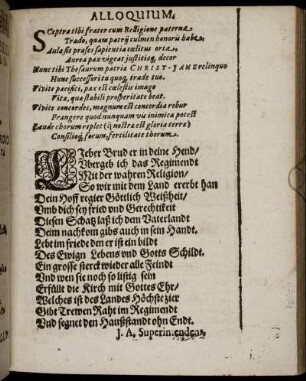 ALLOQUIUM.
Sceptra tibi frater cum Religione paterna
Trado, quam patrij culmen honoris habe.
Aula sit præses sapientia cælitus orta,
Aurea pax vigeat justitiæq; decor
Hunc tibi Thesaurum patriæ CHRIST-JANE relinquo
Hunc successori tu quoq; trade tuo.
Vivite pacifici, pax est cælestis imago
Vita, quæ stabili prosperitate beat.
Vivite concordes, magnum est concordia robur
Frangere quod nunquam vis inimica potest
Laude chorum replet (q̃ nostra est gloria terræ)
Consilioq; forum, fertilitate thorum.
LIeber Bruder in deine Hend/
Ubergeb ich das Regimendt
Mit der wahren Religion/
So wir mit dem Land ererbt han
Dein Hoff regier Götlich Weißheit/
Umb dich sey fried und Gerechtikeit
Diesen Schatz laß ich dem Vaterlandt
Deim nachkom gibs auch in sein Handt.
Lebt im friede den er ist ein bildt
Des Ewign Lebens und Gotts Schildt.
Ein grosse sterck wieder alle Feindt
Und wen sie noch so listig sein
Erfüllt die Kirch mit Gottes Ehr/
Welches ist des Landes Höchste zier
Gibt Trewen Raht im Regimendt
Und segnet den Haußstandt ohn Endt.
J. A. Superintendens.